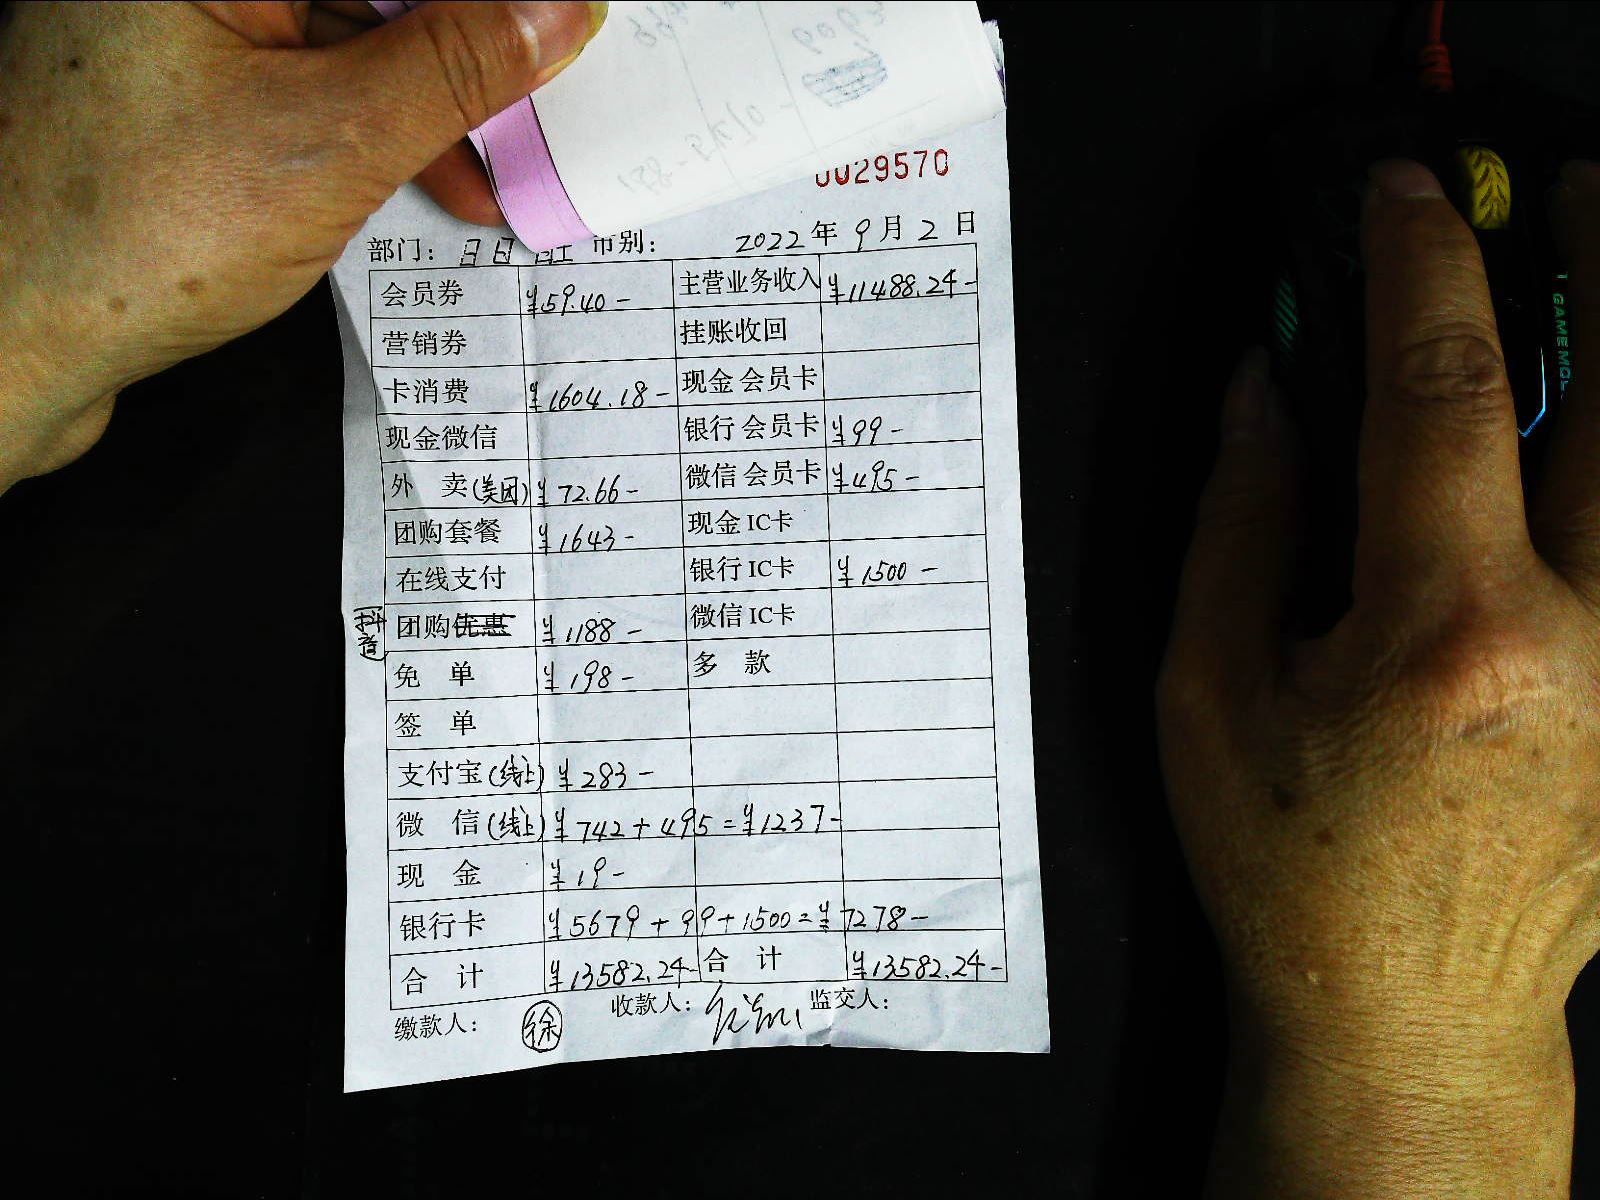 0029570
部门： 市别： 2022年9月2日
会员券 ¥59.40- 主营业务收入 ¥11488.24-
营销券 挂账收回
卡消费 ¥1604.18- 现金 会员卡
现金微信 银行 会员卡 ¥99-
外 卖(美团) ¥72.66- 微信 会员卡 ¥495-
团购套餐 ¥1643- 现金 IC卡
在线支付 银行 IC卡 ¥1500-
团购优惠 ¥1188- 微信 IC卡
免 单 ¥198- 多 款
签 单
支付宝(线上) ¥283-
微 信(线上) ¥742+495=¥1237-
现 金 ¥19-
银行卡 ¥5679+99+1500=¥7278-
合 计 ¥13582.24- 合 计 ¥13582.24-
缴款人： 徐 收款人： 监交人：
GAMEMO